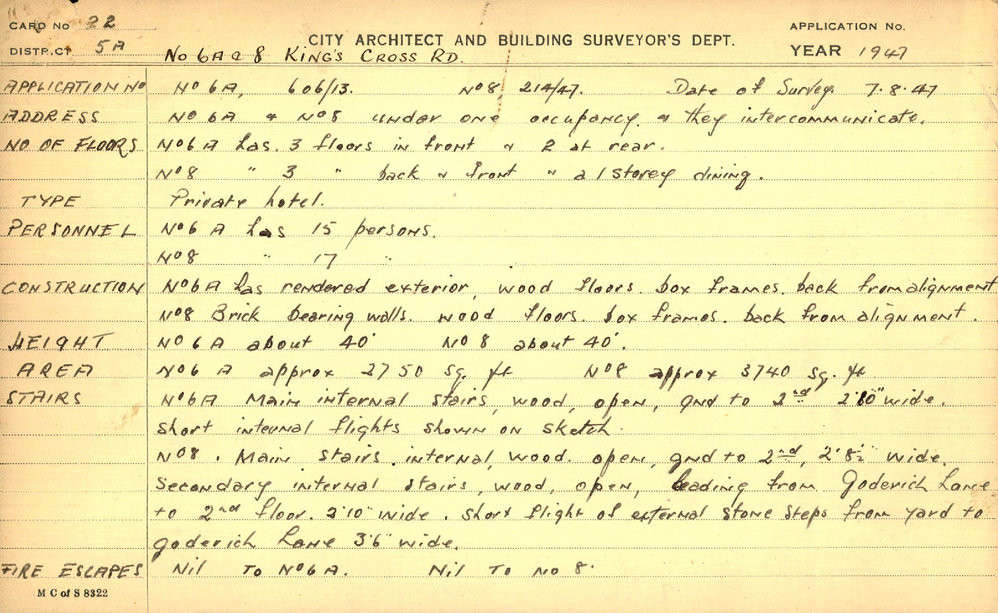 CARD No 22
APPLICATION No.
CITY ARCHITECT AND BUILDING SURVEYOR'S DEPT.
DISTRICT 5A
YEAR 1947
No 6A & 8 KING'S CROSS RD.
APPLICATION No No 6A, 606/13. No 8 214/47. Date of Survey. 7.8.47
ADDRESS No 6A & No 8 under one occupancy. & they intercommunicate.
NO OF FLOORS No 6A has. 3 floors in front & 2 at rear.
No 8 " 3 " back & front " a 1 storey dining.
TYPE Private hotel.
PERSONNEL No 6A has 15 persons.
No 8 " 17 "
CONSTRUCTION No 6A has rendered exterior, wood floors. box frames. back from alignment
No 8 Brick bearing walls. wood floors. box frames. back from alignment.
HEIGHT No 6A about 40' No 8 about 40'.
AREA No 6A approx 2750 sq. ft No 8 approx 3740 sq. ft
STAIRS No 6A Main internal stairs, wood, open, gnd to 2nd 2'10" wide.
Short internal flights shown on sketch.
No 8. Main stairs. internal, wood. open, gnd to 2nd, 2'8½" wide.
Secondary internal stairs, wood, open, leading from Goderich Lane
to 2nd floor. 2'10" wide. Short flight of external stone steps from yard to
Goderich Lane 3'6" wide.
FIRE ESCAPES Nil To No 6A. Nil To No 8.
M C of S 8322